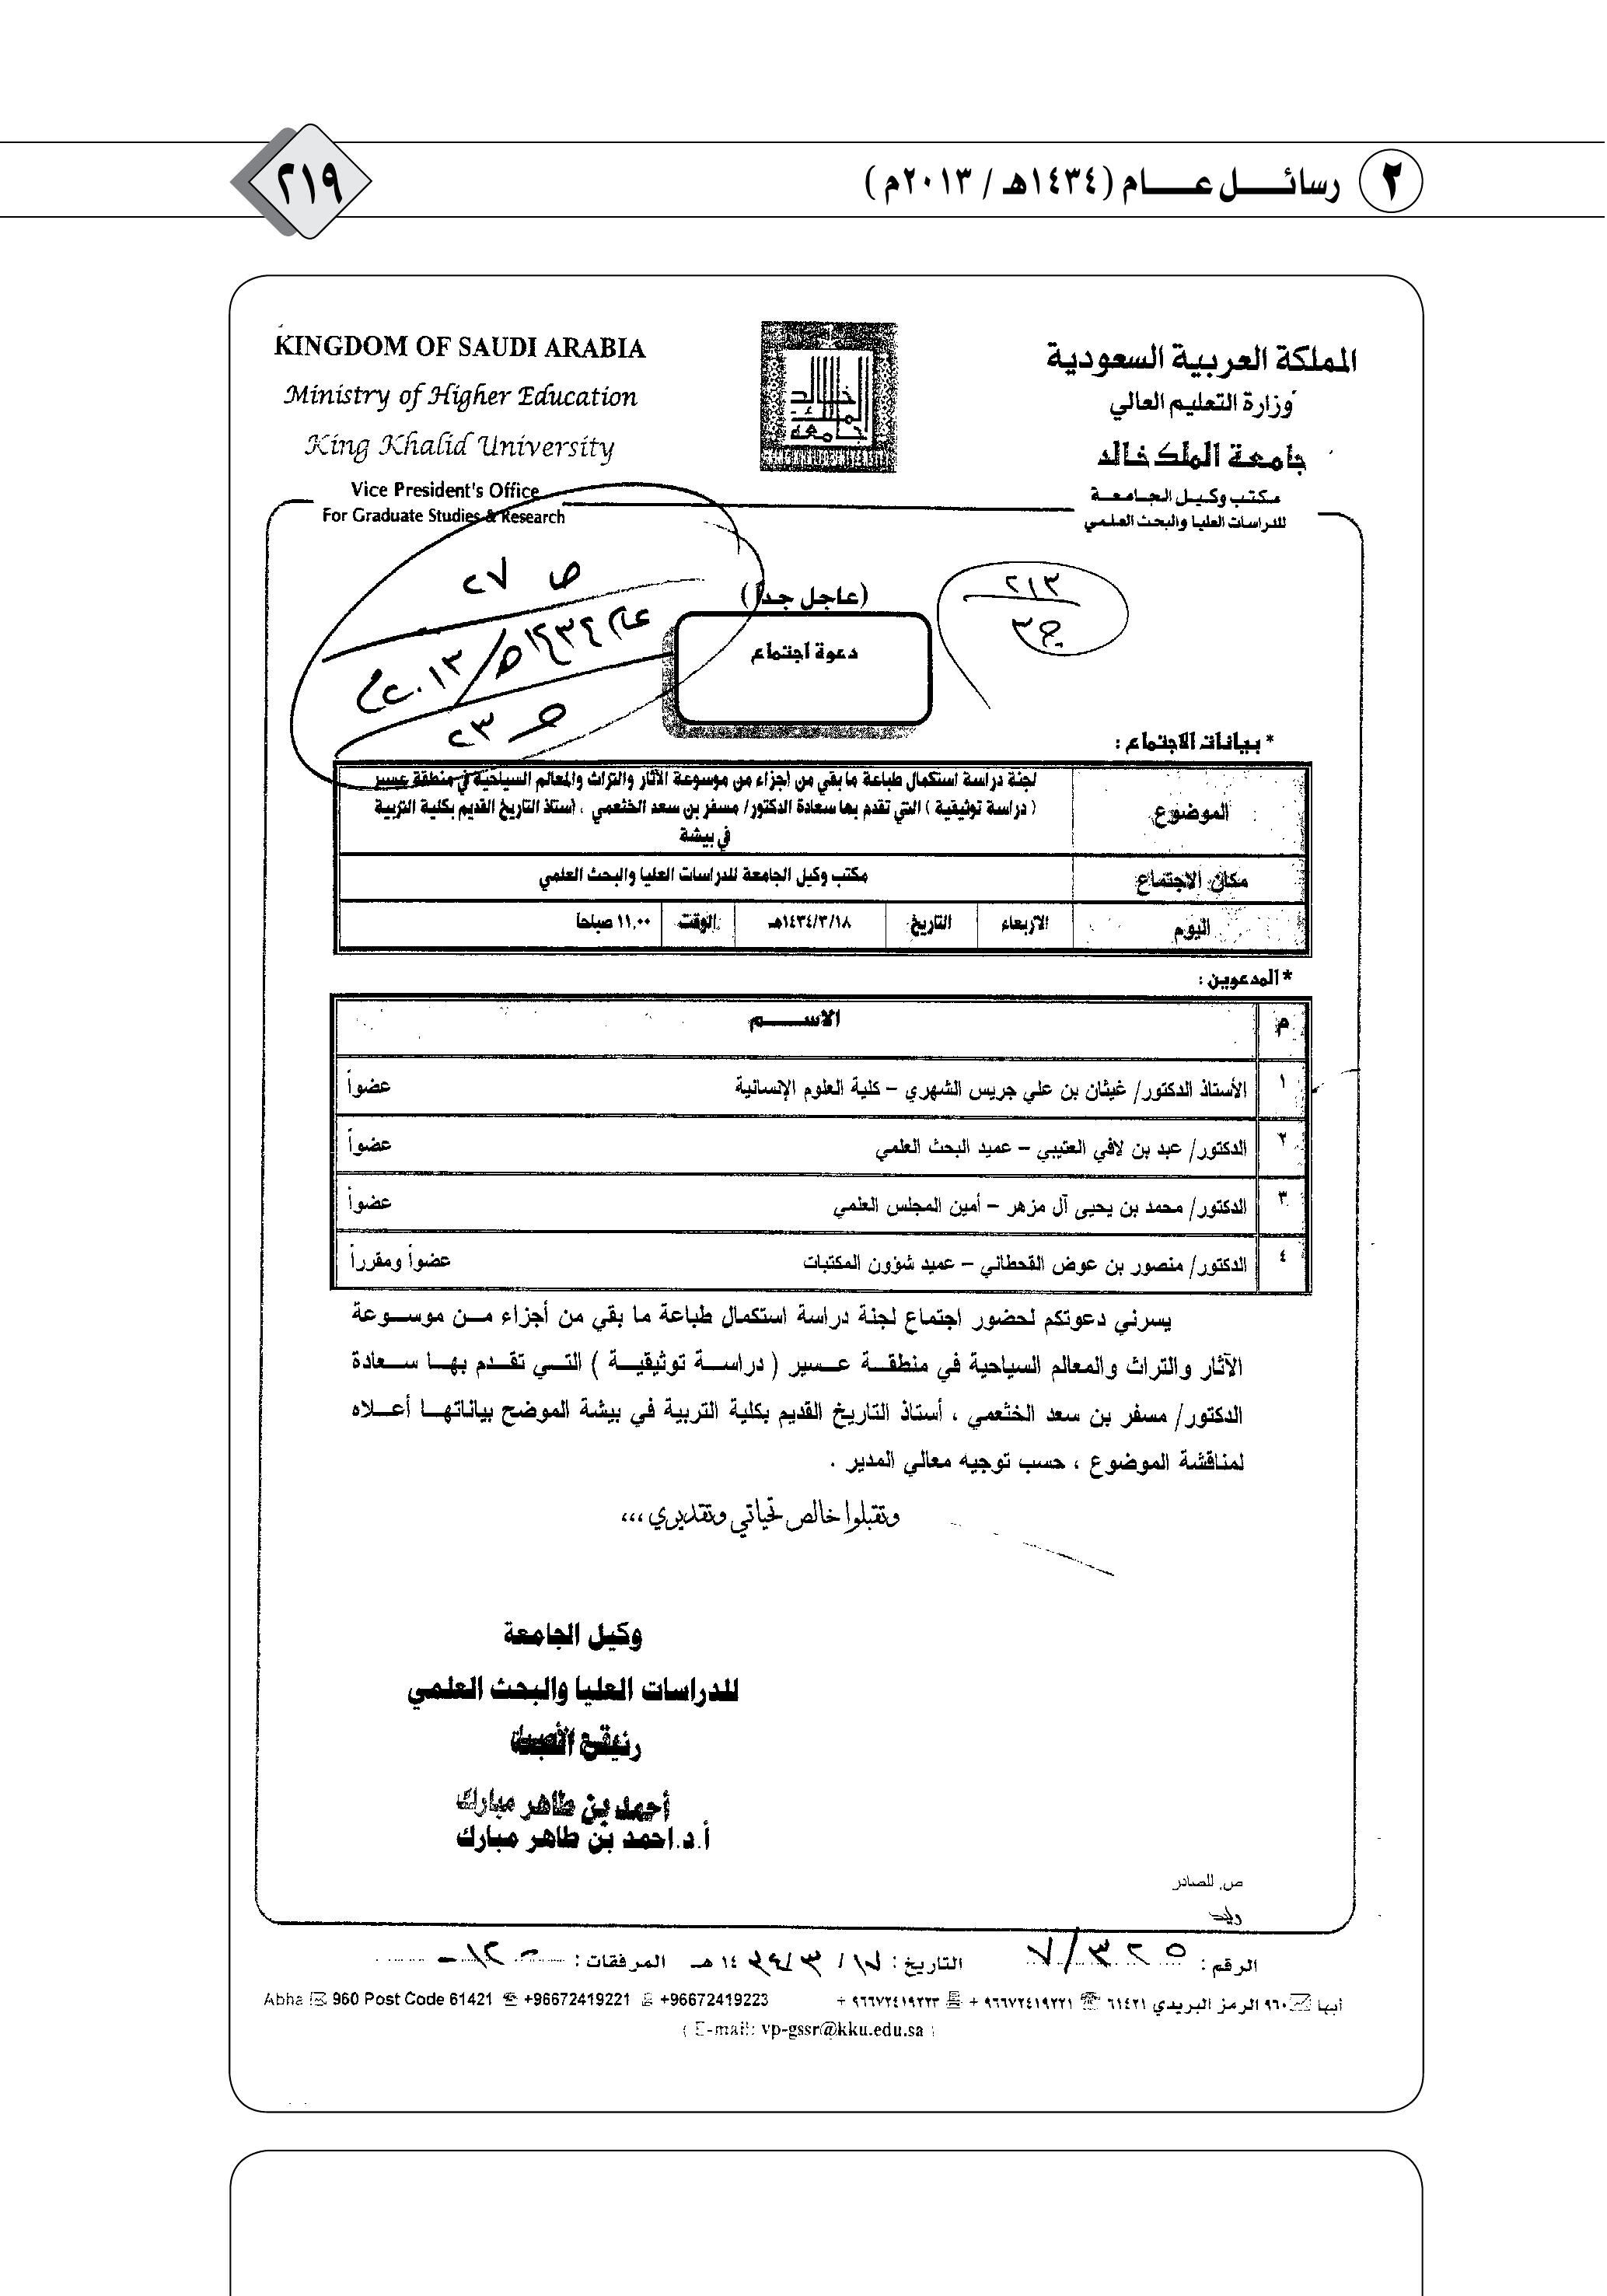 ٢ رسائل عام (١٤٣٤هـ / ٢٠١٣م)
٢١٩
المملكة العربية السعودية
وزارة التعليم العالي
جامعة الملك خالد
مكتب وكيل الجامعة
للدراسات العليا والبحث العلمي
KINGDOM OF SAUDI ARABIA
Ministry of Higher Education
King Khalid University
Vice President's Office
For Graduate Studies & Research
٢١٣
ج ٣
(عاجل جداً)
دعوة اجتماع
ص ٢٧
عام ١٤٣٤هـ/٢٠١٣م
ص ٢٣
* بيانات الاجتماع :
الموضوع
لجنة دراسة استكمال طباعة ما بقي من أجزاء من موسوعة الآثار والتراث والمعالم السياحية في منطقة عسير
( دراسة توثيقية ) التي تقدم بها سعادة الدكتور/ مسفر بن سعد الخثعمي ، أستاذ التاريخ القديم بكلية التربية
في بيشة
مكان الاجتماع مكتب وكيل الجامعة للدراسات العليا والبحث العلمي
اليوم الأربعاء التاريخ ١٤٣٤/٣/١٨هـ الوقت ١١,٠٠ صباحاً
* المدعوين :
م الاســـم
١ الأستاذ الدكتور/ غيثان بن علي جريس الشهري – كلية العلوم الإنسانية عضواً
٢ الدكتور/ عبد بن لافي العتيبي – عميد البحث العلمي عضواً
٣ الدكتور/ محمد بن يحيى آل مزهر – أمين المجلس العلمي عضواً
٤ الدكتور/ منصور بن عوض القحطاني – عميد شؤون المكتبات عضواً ومقرراً
يسرني دعوتكم لحضور اجتماع لجنة دراسة استكمال طباعة ما بقي من أجزاء من موسوعة
الآثار والتراث والمعالم السياحية في منطقة عسير ( دراسة توثيقية ) التي تقدم بها سعادة
الدكتور/ مسفر بن سعد الخثعمي ، أستاذ التاريخ القديم بكلية التربية في بيشة الموضح بياناتها أعلاه
لمناقشة الموضوع ، حسب توجيه معالي المدير .
وتقبلوا خالص تحياتي وتقديري ،،،
وكيل الجامعة
للدراسات العليا والبحث العلمي
أحمد بن طاهر مبارك
أ.د.احمد بن طاهر مبارك
ص. للصادر
وليد
الرقم : ٧/٣٢٥ التاريخ : ١٤ هـ المرفقات :
Abha 960 Post Code 61421 +96672419221 +96672419223
أبها ٩٦٠ الرمز البريدي ٦١٤٢١ ٩٦٦٧٢٤١٩٢٢١ + ٩٦٦٧٢٤١٩٢٢٣ +
( E-mail: vp-gssr@kku.edu.sa )